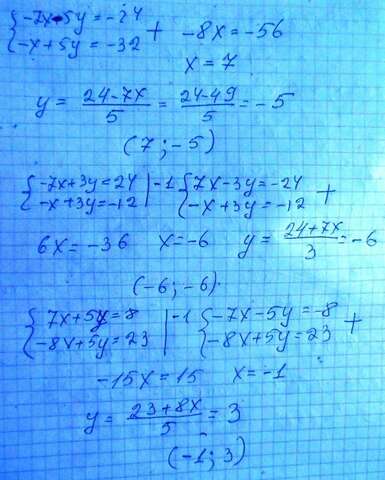 {-7x-5y=-24
{-x+5y=-32 + -8x=-56
x=7
y=24-7x/5=24-49/5=-5
(7;-5)
{-7x+3y=24 |-1 {7x-3y=-24
{-x+3y=-12 | {-x+3y=-12 +
6x=-36 x=-6 y=24+7x/3=-6
(-6;-6).
{7x+5y=8 |-1 {-7x-5y=-8
{-8x+5y=23 | {-8x+5y=23 +
-15x=15 x=-1
y=23+8x/5=3
(-1;3)